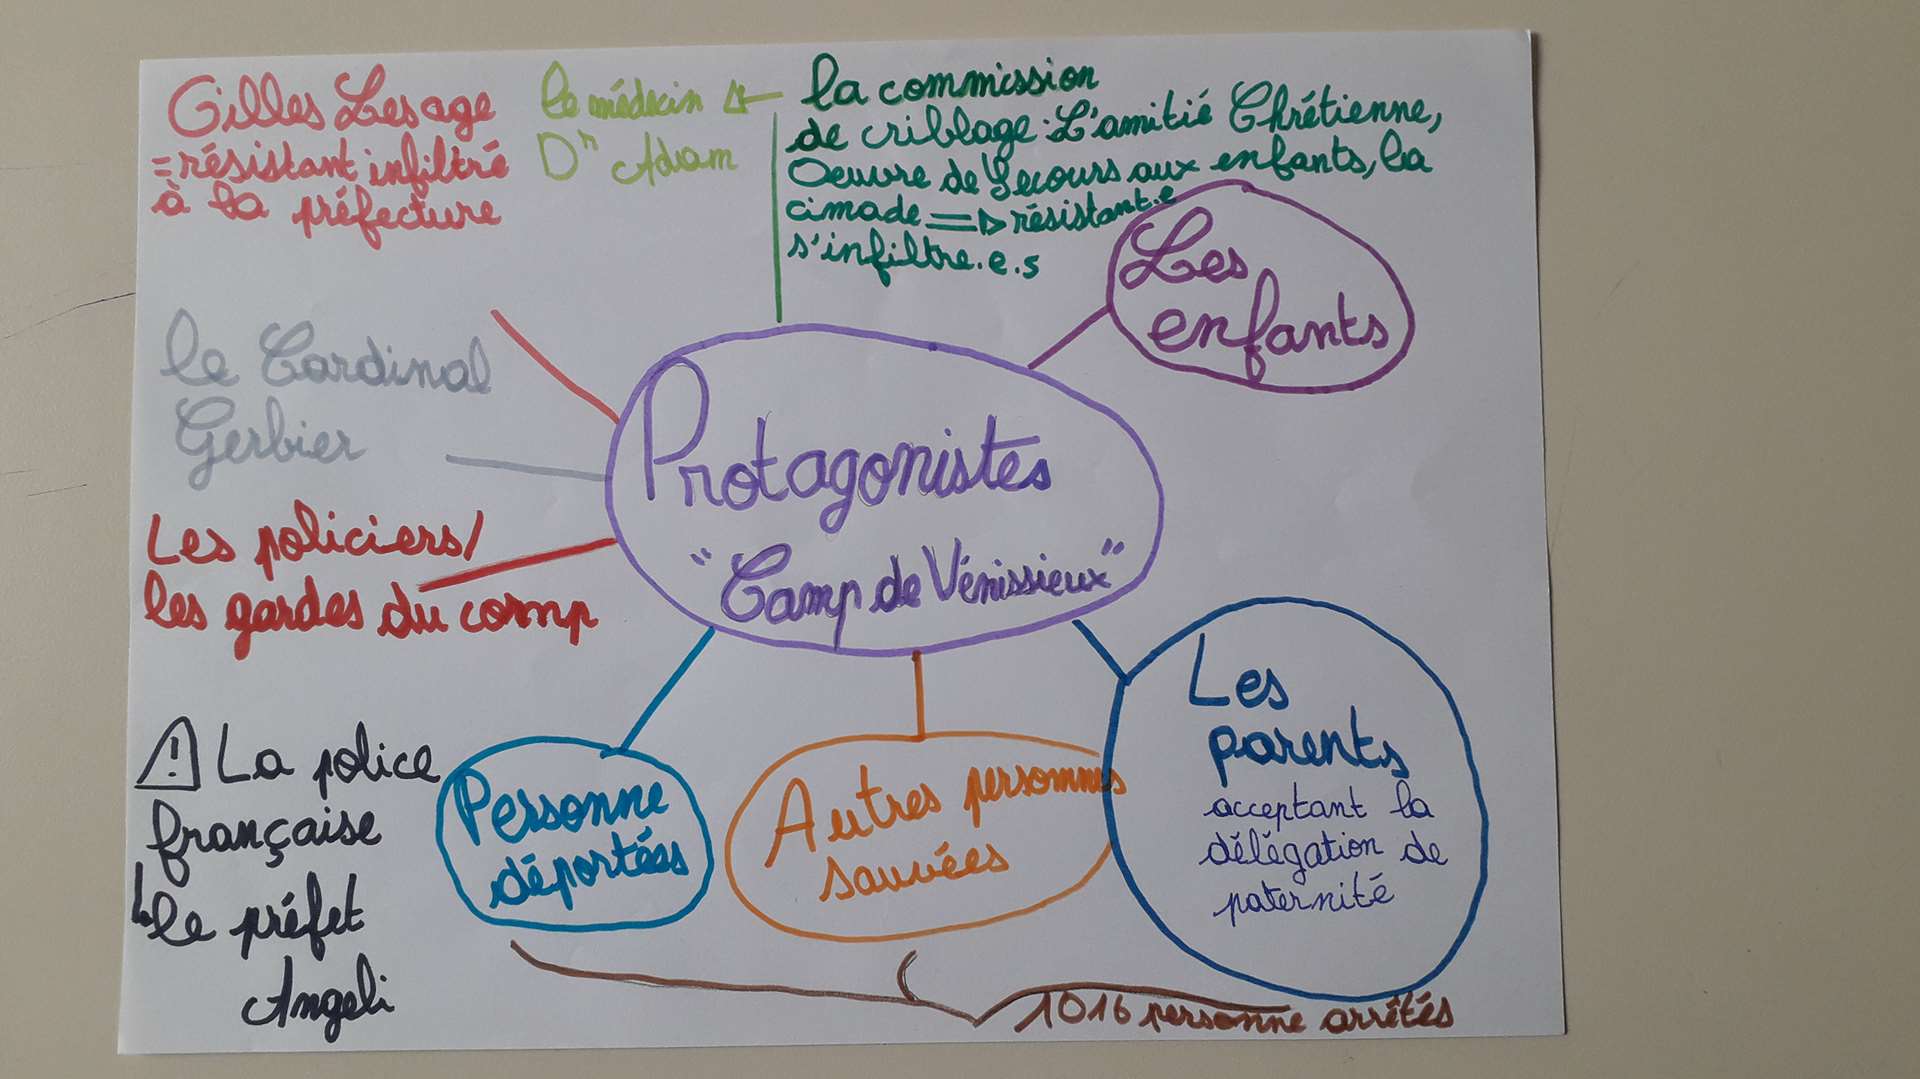 Gilles Lesage
= résistant infiltré
à la préfecture
le médecin
Dr Adam
la commission
de criblage : L'amitié Chrétienne,
Oeuvre de Secours aux enfants, la
cimade => résistant.e
s'infiltre.e.s
Les
enfants
le Cardinal
Gerbier
Protagonistes
"Camp de Vénissieux"
Les policiers/
les gardes du camp
⚠ La police
française
le préfet
Angeli
Personne
déportées
Autres personnes
sauvées
Les
parents
acceptant la
délégation de
paternité
1016 personne arrêtés